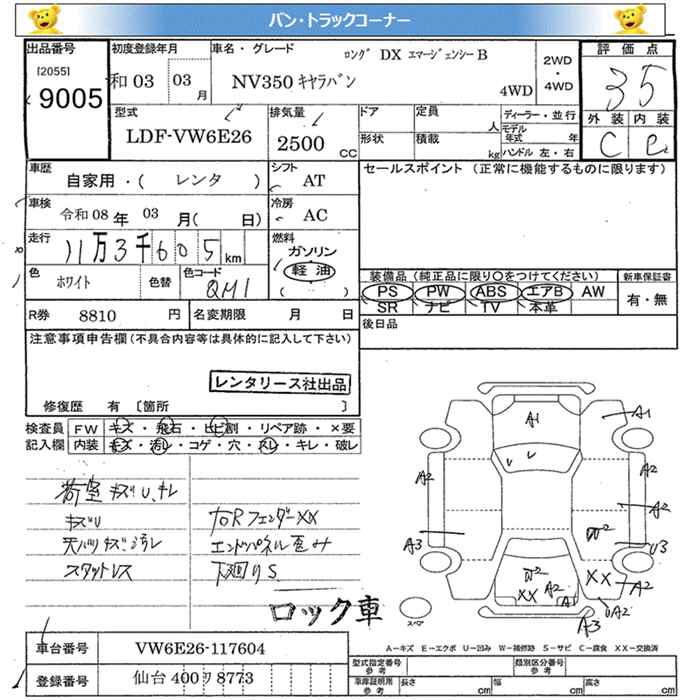 バン・トラックコーナー
出品番号 初度登録年月 車名・グレード ロング DX エマージェンシーB 2WD ・ 4WD 評価点
[2055] 9005 和03 03 月 NV350 キャラバン 4WD 35
型式 LDF-VW6E26 排気量 2500 CC ドア 定員 人 ディーラー・並行 外装 内装
形状 積載 kg モデル年式 年 ハンドル 左・右 C e
車歴 自家用・( レンタ ) シフト AT セールスポイント (正常に機能するものに限ります)
車検 令和08年 03 月( 日) 冷房 AC
走行 11万3千605 km 燃料 ガソリン 軽油 ( )
色 ホワイト 色替 色コード QM1 装備品 (純正品に限り○をつけてください) 新車保証書
PS PW ABS エアB AW 有・無
SR ナビ TV 本革
R券 8810 円 名変期限 月 日 後日品
注意事項申告欄(不具合内容等は具体的に記入して下さい)
レンタリース社出品
修復歴 有 [箇所 ]
検査員 FW キズ・飛石・ヒビ割・リペア跡・×要
記入欄 内装 キズ・汚れ・コゲ・穴・スレ・キレ・破レ
荷室キズU、キレ
キズU 右Rフェンダーxx
天バリキズ汚レ エンドパネル歪み
スタットレス 下廻りS
ロック車
A1 A1
A2 A2
A2
A3 W2 U3
W2 XX A2 A1 XX A2 UA2
A3
スペア
A-キズ E-エクボ U-凹み W-補修跡 S-サビ C-腐食 XX-交換済
車台番号 VW6E26-117604 型式指定番号 参考 類別区分番号 参考
登録番号 仙台 400 ヲ 8773 車庫証明用 参考 長さ cm 幅 cm 高さ cm